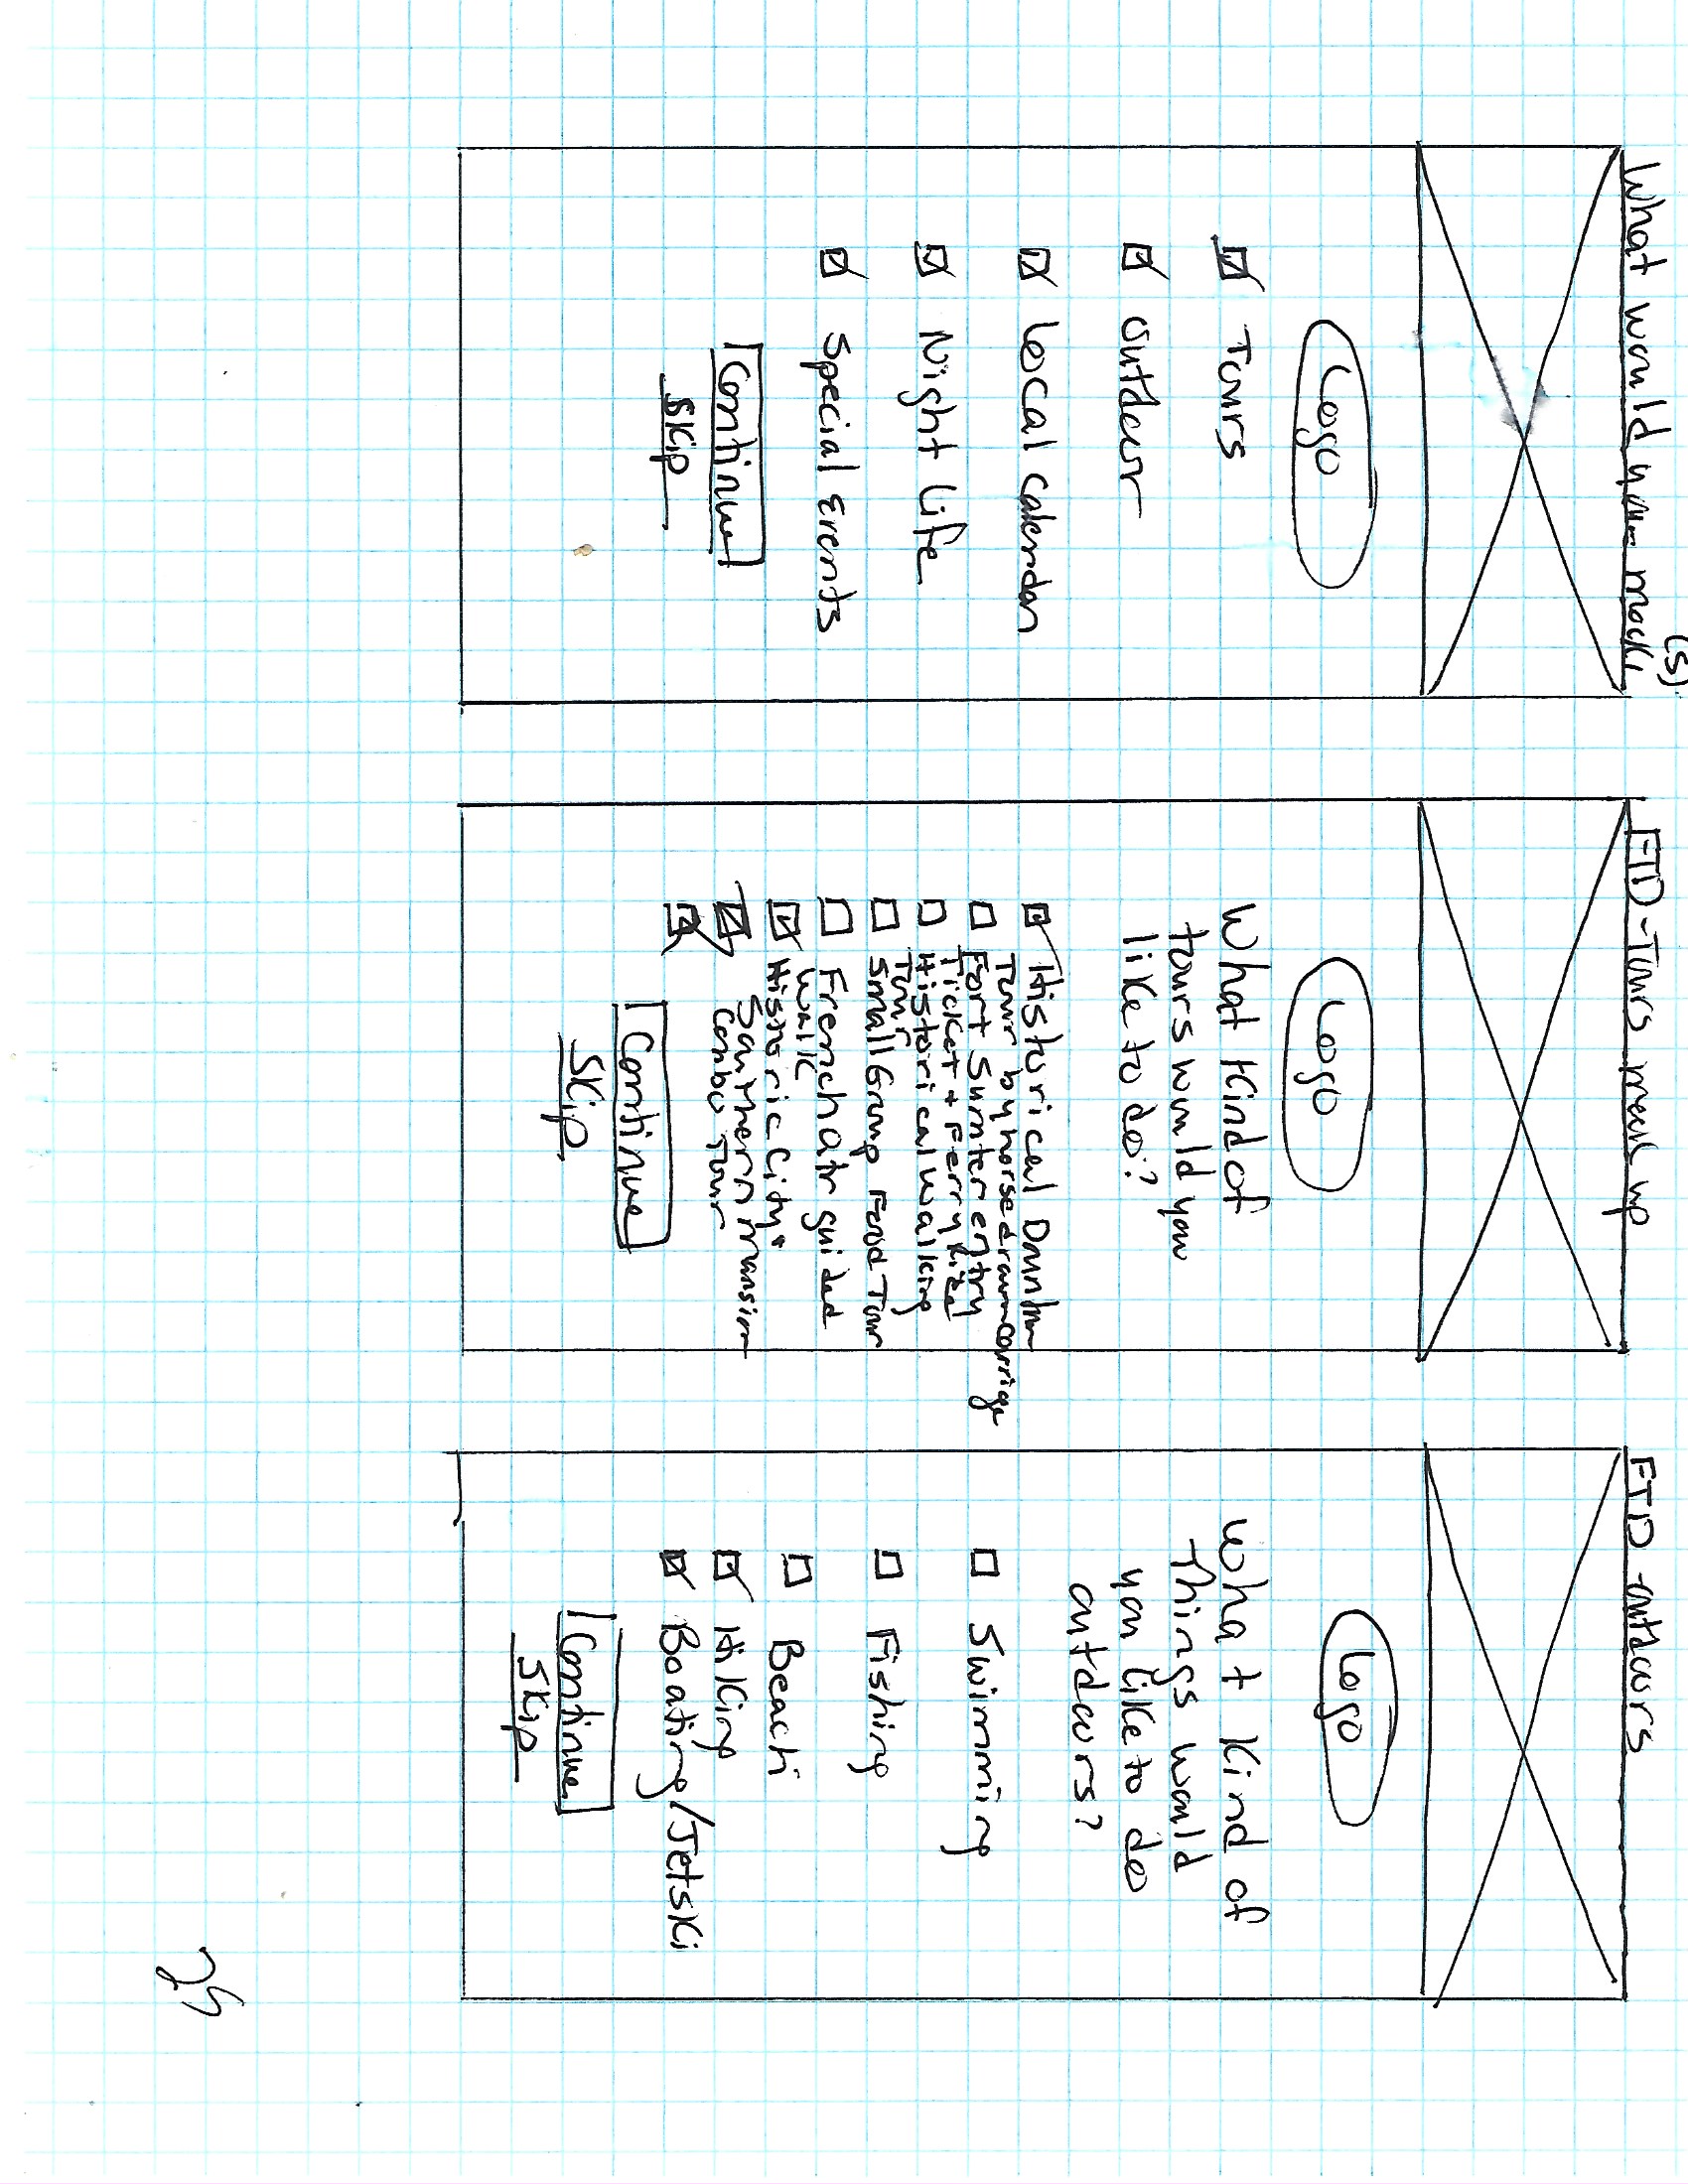 What would you-
(s)
Logo
Tours
outdour
Local calendar
Night Life
Special Events
Continue
Skip
FTD-Tours mock up
Logo
What Kind of
tours would you
like to do?
Historical
Tour by horsedrawn carrige
Fort Sumter entry
Ticket + Ferry
Historical walking
Tour
Small Group Food Tour
French qtr guided
Walk
Historic City &
Southern mansion
Combo Tour
Continue
Skip
FTD-outdours
Logo
What Kind of
Things would
you like to do
outdours?
Swimming
Fishing
Beach
Hiking
Boating/Jetski
Continue
Skip